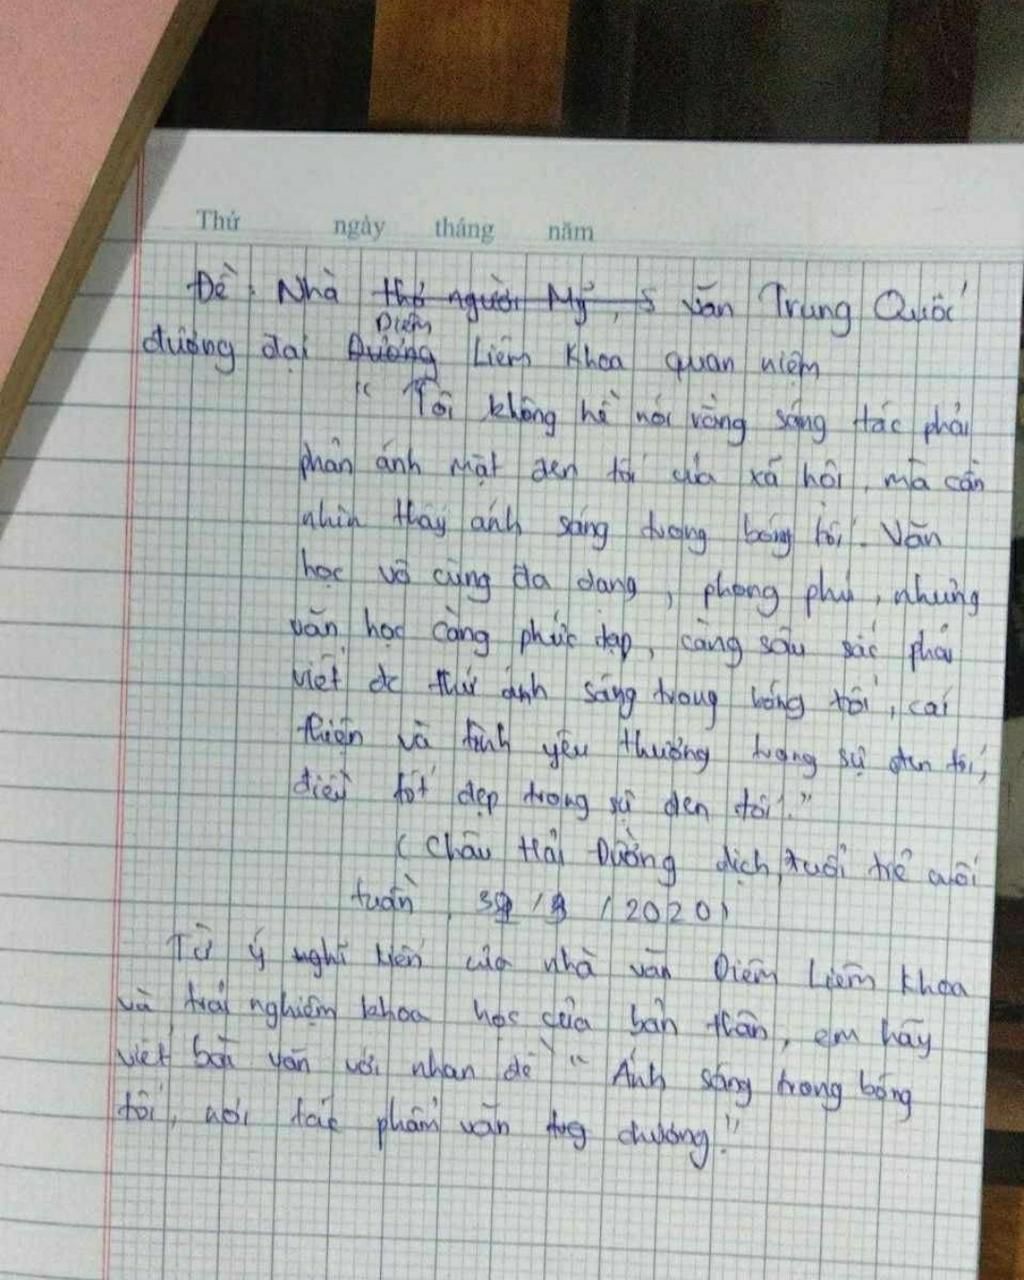 Thứ ngày tháng năm
Đề: Nhà thơ người Mỹ, s văn Trung Quốc
Diêm
đương đại Dương Liêm Khoa quan niệm
" Tôi không hề nói rằng sáng tác phải
phản ánh mặt đen tối của xã hội, mà cần
nhìn thấy ánh sáng trong bóng tối. Văn
học vô cùng đa dạng, phong phú, nhưng
văn học càng phức tạp, càng sâu sắc phải
viết đc thứ ánh sáng trong bóng tối, cái
thiện và tình yêu thương trong sự đen tối,
điều tốt đẹp trong sự đen tối."
( Châu Hải Đường dịch, tuổi trẻ cuối
tuần, / 2020)
Từ ý kiến của nhà văn Diêm Liêm Khoa
và trải nghiệm khoa học của bản thân, em hãy
viết bài văn với nhan đề " Ánh sáng trong bóng
tối, nơi tác phẩm văn chương."